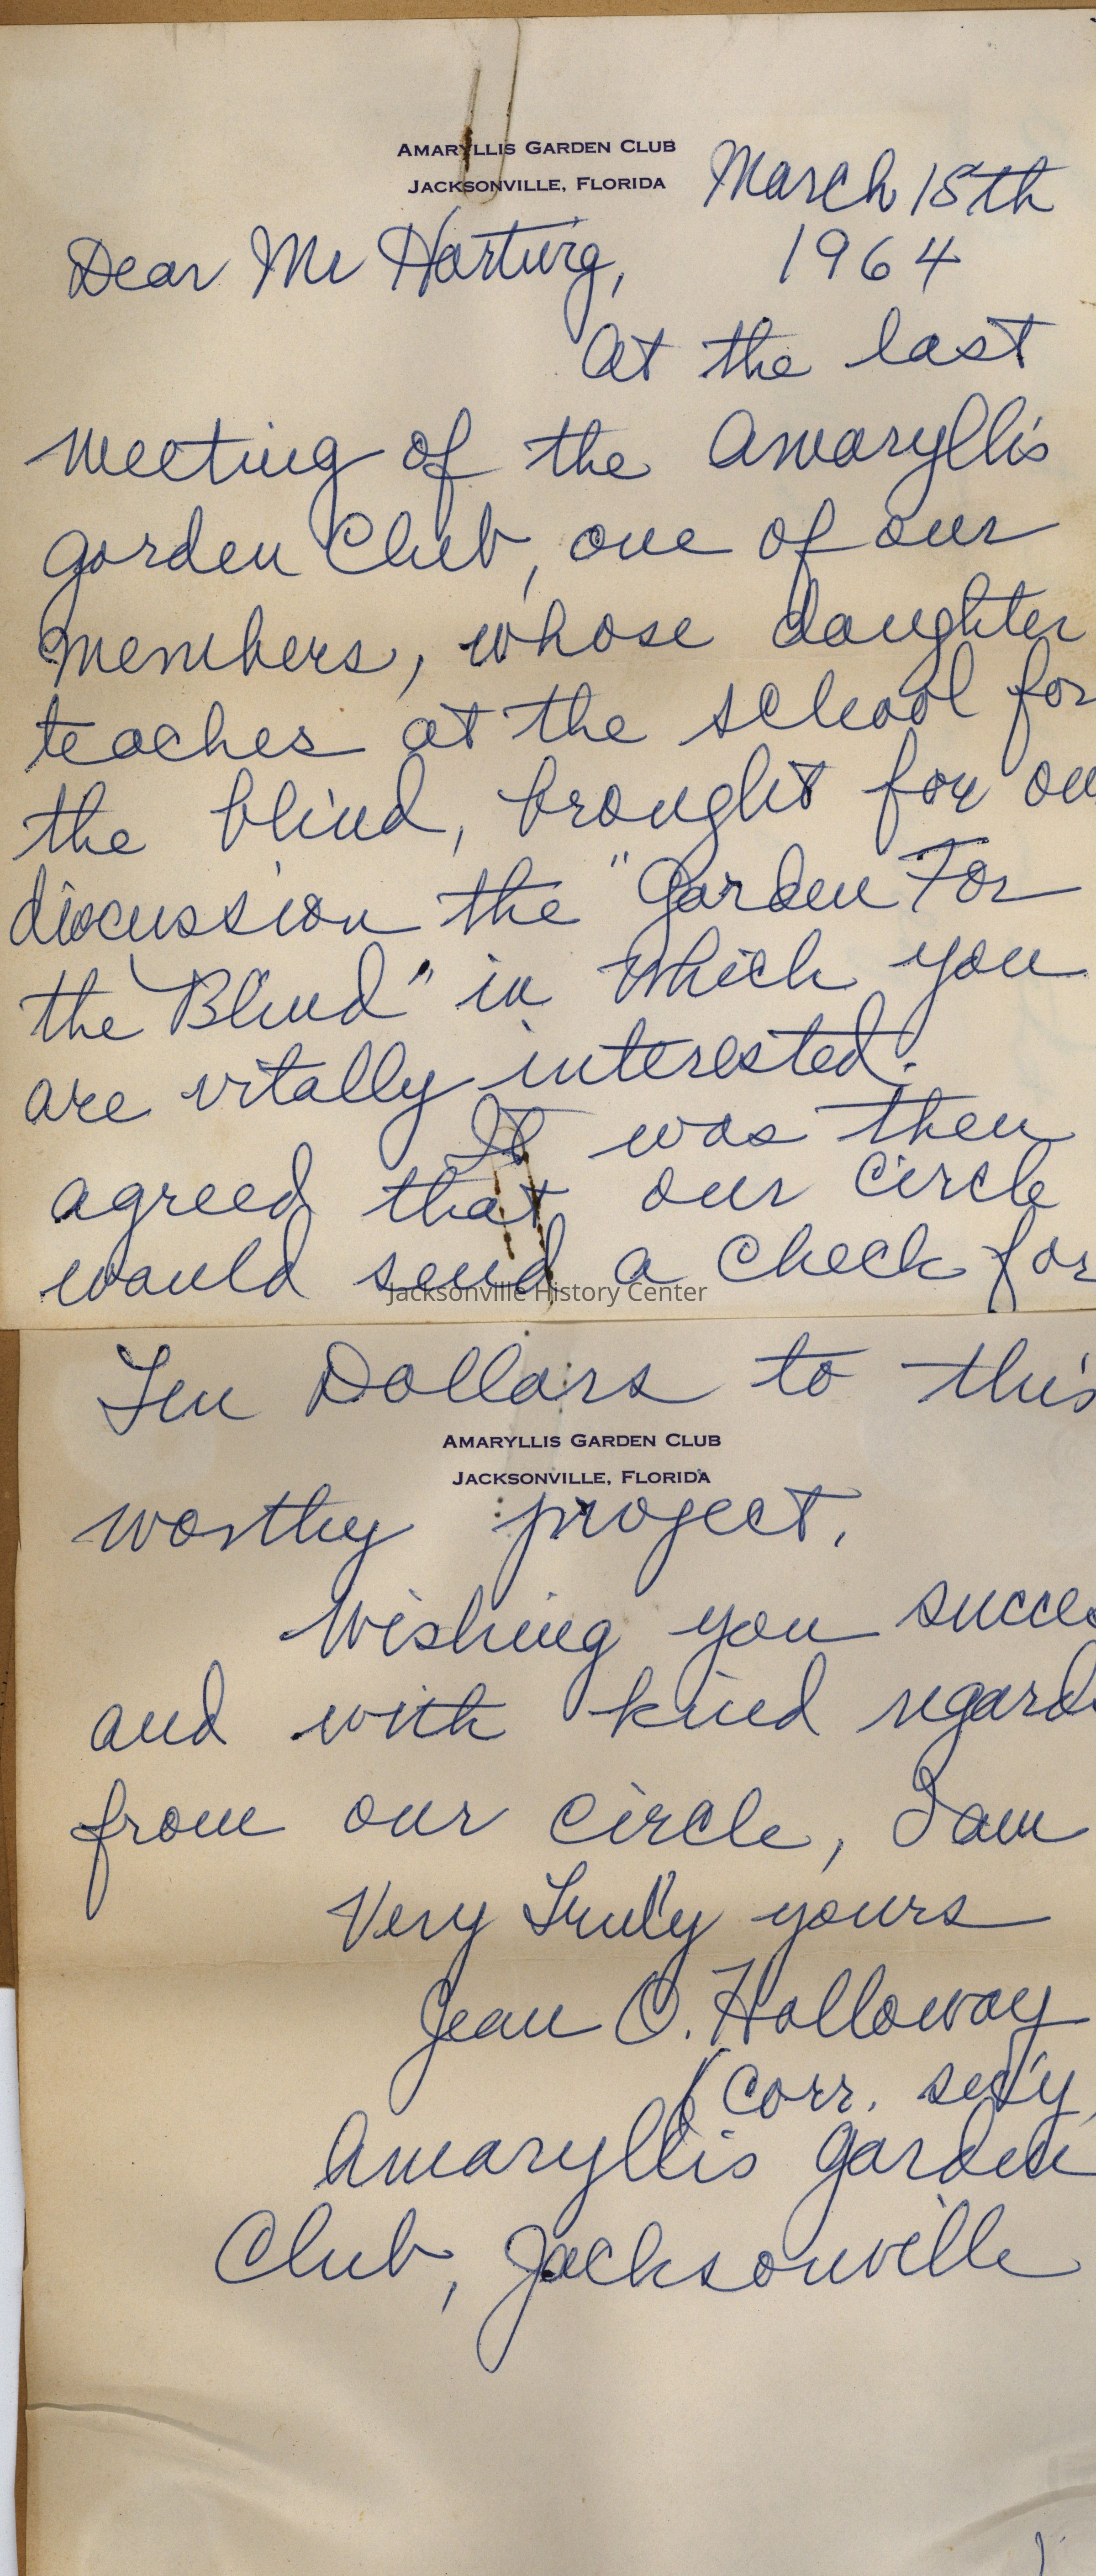 AMARYLLIS GARDEN CLUB
JACKSONVILLE, FLORIDA
March 15th
1964
Dear Mr Hartwig,
At the last
meeting of the Amaryllis
Garden Club, one of our
members, whose daughter
teaches at the school for
the blind, brought for ou
discussion the "Garden For
the Blind" in which you
are vitally interested.
It was then
agreed that our circle
would send a check for
Jacksonville History Center
Ten Dollars to this
AMARYLLIS GARDEN CLUB
JACKSONVILLE, FLORIDA
worthy project.
Wishing you succes
and with kind regard
from our circle, I am
Very Truly yours
Jean O. Holloway
(Corr. sec'y
Amaryllis Garden
Club, Jacksonville